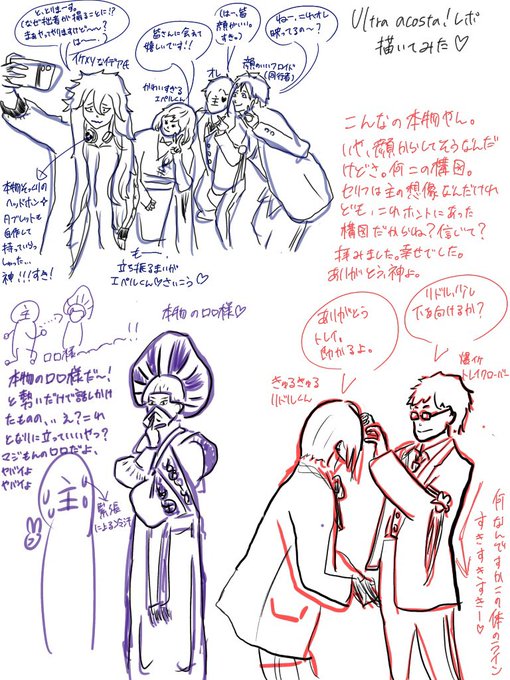 Ultra acosta!レポ
描いてみた♡
とっとりまーす。
(なぜ拙者が撮ることに!?
まぁやってやりますけど〜?
は〜〜)
イケメンなイデア氏
皆さんに会えて
嬉しいです!!
かわいすぎる
エペルくん
(はー、皆
顔がいい。
すき。)
オレ
主
ねー、これオレ
映ってるの〜?
顔のいいフロイド
(同行者)
本物そっくりの
ヘッドホン☆
タブレットも
自作して
持っていらっ
しゃった…
神!!!すき!
もー、
立ち振るまいが
エペルくん♡さいこう♡
こんなの本物やん。
いや、顔からしてそうなんだ
けどさ。何この構図。
セリフは主の想像なんだけれ
ども、これホントにあった
構図だからね?信じて?
拝みました。幸せでした。
ありがとう神よ。
主
ロロ様〜〜!!
本物のロロ様♡
本物のロロ様だ〜!
と勢いだけで話しかけ
たものの、、え?これ
となりに立っていいやつ?
マジもんのロロだよ、
ヤバイよ
ヤバイよ
主
緊張
による冷汗
ありがとう
トレイ。
助かるよ。
きゅるきゅる
リドルくん
リドル、少し
下を向けるか?
爆イケ
トレイクローバー
何なんですかこの体のライン
すきすきすきー♡